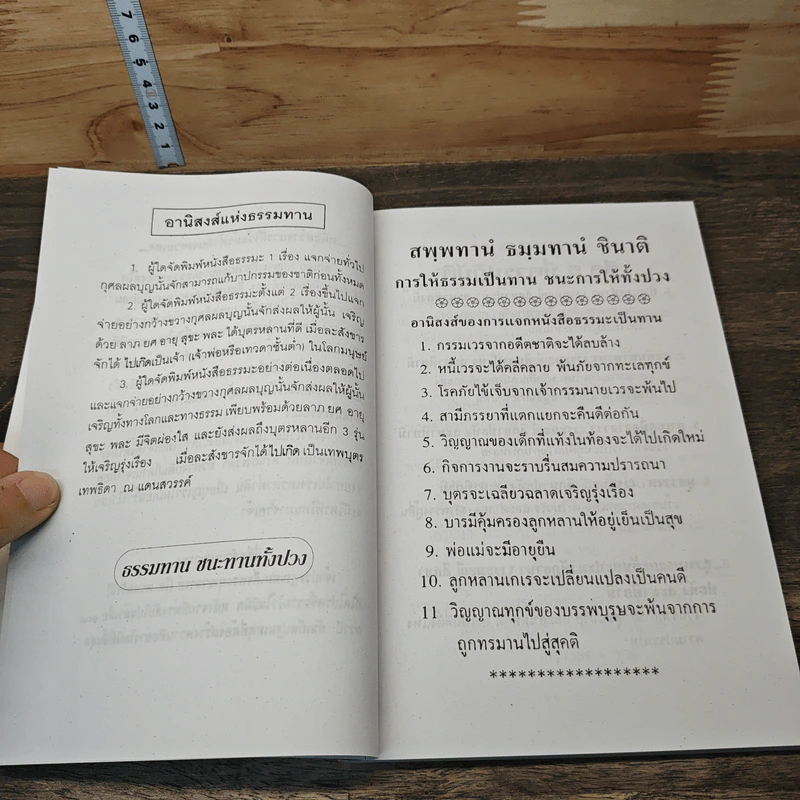 7 6 5 4 3 2 1
อานิสงส์แห่งธรรมทาน
1. ผู้ใดจัดพิมพ์หนังสือธรรมะ 1 เรื่อง แจกจ่ายทั่วไป
กุศลผลบุญนั้นจักสามารถแก้บาปกรรมของชาติก่อนทั้งหมด
2. ผู้ใดจัดพิมพ์หนังสือธรรมะตั้งแต่ 2 เรื่องขึ้นไปแจก
จ่ายอย่างกว้างขวางกุศลผลบุญนั้นจักส่งผลให้ผู้นั้น เจริญ
ด้วย ลาภ ยศ อายุ สุขะ พละ ได้บุตรหลานที่ดี เมื่อละสังขาร
จักได้ ไปเกิดเป็นเจ้า (เจ้าพ่อหรือเทวดาชั้นต่ำ) ในโลกมนุษย์
3. ผู้ใดจัดพิมพ์หนังสือธรรมะอย่างต่อเนื่องตลอดไป
และแจกจ่ายอย่างกว้างขวางกุศลผลบุญนั้นจักส่งผลให้ผู้นั้น
เจริญทั้งทางโลกและทางธรรม เพียบพร้อมด้วยลาภ ยศ อายุ
สุขะ พละ มีจิตผ่องใส และยังส่งผลถึงบุตรหลานอีก 3 รุ่น
ให้เจริญรุ่งเรือง เมื่อละสังขารจักได้ ไปเกิด เป็นเทพบุตร
เทพธิดา ณ แดนสวรรค์
ธรรมทาน ชนะทานทั้งปวง
สพฺพทานํ ธมฺมทานํ ชินาติ
การให้ธรรมเป็นทาน ชนะการให้ทั้งปวง
อานิสงส์ของการแจกหนังสือธรรมะเป็นทาน
1. กรรมเวรจากอดีตชาติจะได้ลบล้าง
2. หนี้เวรจะได้คลี่คลาย พ้นภัยจากทะเลทุกข์
3. โรคภัยไข้เจ็บจากเจ้ากรรมนายเวรจะพ้นไป
4. สามีภรรยาที่แตกแยกจะคืนดีต่อกัน
5. วิญญาณของเด็กที่แท้งในท้องจะได้ไปเกิดใหม่
6. กิจการงานจะราบรื่นสมความปรารถนา
7. บุตรจะเฉลียวฉลาดเจริญรุ่งเรือง
8. บารมีคุ้มครองลูกหลานให้อยู่เย็นเป็นสุข
9. พ่อแม่จะมีอายุยืน
10. ลูกหลานเกเรจะเปลี่ยนแปลงเป็นคนดี
11 วิญญาณทุกข์ของบรรพบุรุษจะพ้นจากการ
ถูกทรมานไปสู่สุคติ
******************